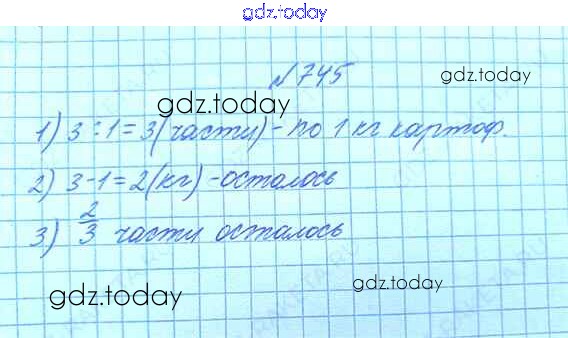 gdz.today
№745
gdz.today
gdz.today
1) 3:1=3(части)-по 1 кг картоф.
2) 3-1=2(кг)-осталось
3) 2/3 части осталось
gdz.today
gdz.today